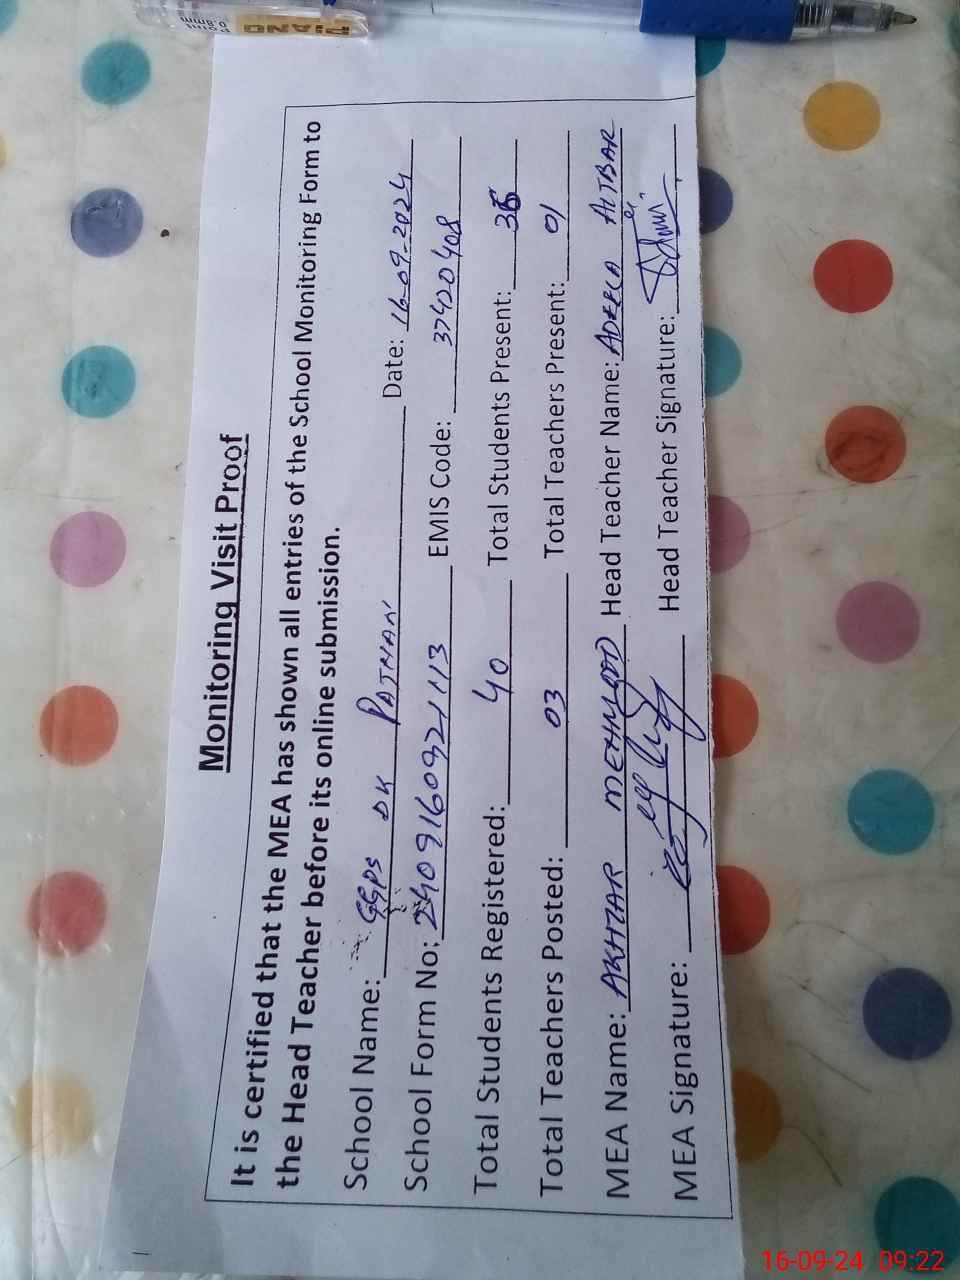 PIANO
Point
0.8mm
Monitoring Visit Proof
It is certified that the MEA has shown all entries of the School Monitoring Form to
the Head Teacher before its online submission.
School Name: GGPS DK PATHAN Date: 16-09-2024
School Form No: 2409160921113 EMIS Code: 37420408
Total Students Registered: 40 Total Students Present:
Total Teachers Posted: 03 Total Teachers Present: 01
MEA Name: AKHTAR MEHMOOD Head Teacher Name: ADEELA AITBAR
MEA Signature: Head Teacher Signature:
16-09-24 09:22